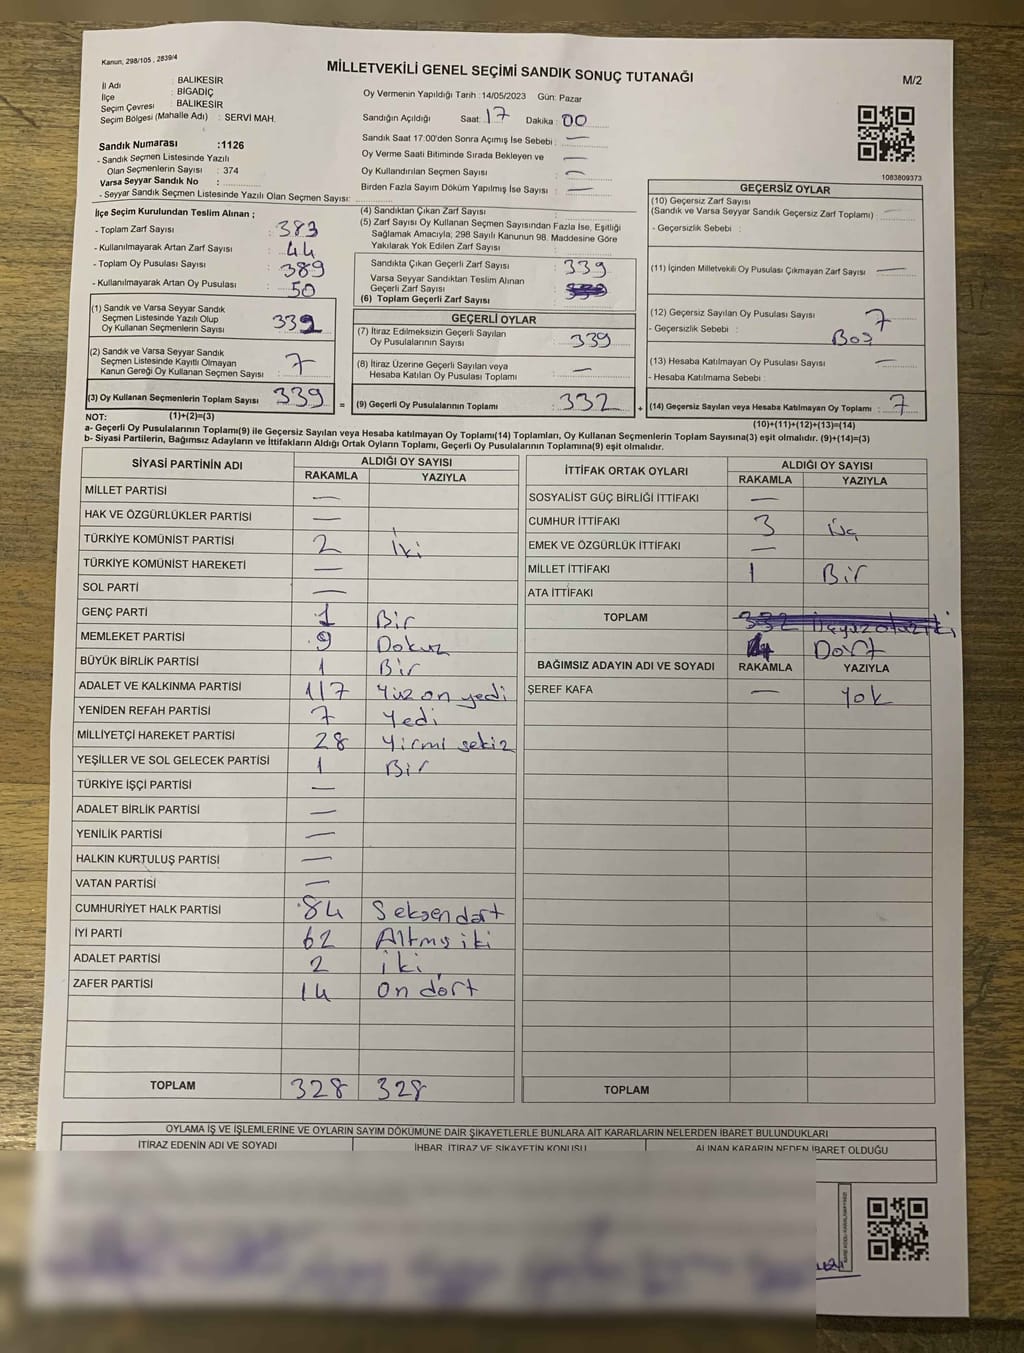 Kanun, 298/105, 2839/4
MİLLETVEKİLİ GENEL SEÇİMİ SANDIK SONUÇ TUTANAĞI
M/2
İl Adı : BALIKESİR
İlçe : BİGADİÇ
Seçim Çevresi : BALIKESİR
Seçim Bölgesi (Mahalle Adı) : SERVİ MAH.
Oy Vermenin Yapıldığı Tarih :14/05/2023 Gün: Pazar
Sandığın Açıldığı Saat: 17 Dakika: 00
Sandık Saat 17:00'den Sonra Açımış İse Sebebi : —
Oy Verme Saati Bitiminde Sırada Bekleyen ve —
Oy Kullandırılan Seçmen Sayısı : —
Birden Fazla Sayım Döküm Yapılmış İse Sayısı : —
1083809373
Sandık Numarası :1126
- Sandık Seçmen Listesinde Yazılı
Olan Seçmenlerin Sayısı : 374
Varsa Seyyar Sandık No :
- Seyyar Sandık Seçmen Listesinde Yazılı Olan Seçmen Sayısı:
İlçe Seçim Kurulundan Teslim Alınan ;
- Toplam Zarf Sayısı : 383
- Kullanılmayarak Artan Zarf Sayısı : 44
- Toplam Oy Pusulası Sayısı : 389
- Kullanılmayarak Artan Oy Pusulası : 50
(1) Sandık ve Varsa Seyyar Sandık
Seçmen Listesinde Yazılı Olup
Oy Kullanan Seçmenlerin Sayısı 332
(2) Sandık ve Varsa Seyyar Sandık
Seçmen Listesinde Kayıtlı Olmayan
Kanun Gereği Oy Kullanan Seçmen Sayısı 7
(3) Oy Kullanan Seçmenlerin Toplam Sayısı 339
(4) Sandıktan Çıkan Zarf Sayısı :
(5) Zarf Sayısı Oy Kullanan Seçmen Sayısından Fazla İse, Eşitliği
Sağlamak Amacıyla; 298 Sayılı Kanunun 98. Maddesine Göre
Yakılarak Yok Edilen Zarf Sayısı :
Sandıkta Çıkan Geçerli Zarf Sayısı : 339
Varsa Seyyar Sandıktan Teslim Alınan
Geçerli Zarf Sayısı :
(6) Toplam Geçerli Zarf Sayısı :
GEÇERLİ OYLAR
(7) İtiraz Edilmeksizin Geçerli Sayılan
Oy Pusulalarının Sayısı : 339
(8) İtiraz Üzerine Geçerli Sayılan veya
Hesaba Katılan Oy Pusulası Toplamı : —
= (9) Geçerli Oy Pusulalarının Toplamı : 332
GEÇERSİZ OYLAR
(10) Geçersiz Zarf Sayısı
(Sandık ve Varsa Seyyar Sandık Geçersiz Zarf Toplamı) : —
- Geçersizlik Sebebi :
(11) İçinden Milletvekili Oy Pusulası Çıkmayan Zarf Sayısı : —
(12) Geçersiz Sayılan Oy Pusulası Sayısı : 7
- Geçersizlik Sebebi : Boş
(13) Hesaba Katılmayan Oy Pusulası Sayısı : —
- Hesaba Katılmama Sebebi :
+ (14) Geçersiz Sayılan veya Hesaba Katılmayan Oy Toplamı : 7
NOT: (1)+(2)=(3)
(10)+(11)+(12)+(13)=(14)
a- Geçerli Oy Pusulalarının Toplamı(9) ile Geçersiz Sayılan veya Hesaba katılmayan Oy Toplamı(14) Toplamları, Oy Kullanan Seçmenlerin Toplam Sayısına(3) eşit olmalıdır. (9)+(14)=(3)
b- Siyasi Partilerin, Bağımsız Adayların ve İttifakların Aldığı Ortak Oyların Toplamı, Geçerli Oy Pusulalarının Toplamına(9) eşit olmalıdır.
SİYASİ PARTİNİN ADI ALDIĞI OY SAYISI
RAKAMLA YAZIYLA
MİLLET PARTİSİ —
HAK VE ÖZGÜRLÜKLER PARTİSİ —
TÜRKİYE KOMÜNİST PARTİSİ 2 İki
TÜRKİYE KOMÜNİST HAREKETİ —
SOL PARTİ —
GENÇ PARTİ 1 Bir
MEMLEKET PARTİSİ 9 Dokuz
BÜYÜK BİRLİK PARTİSİ 1 Bir
ADALET VE KALKINMA PARTİSİ 117 Yüz on yedi
YENİDEN REFAH PARTİSİ 7 Yedi
MİLLİYETÇİ HAREKET PARTİSİ 28 Yirmi sekiz
YEŞİLLER VE SOL GELECEK PARTİSİ 1 Bir
TÜRKİYE İŞÇİ PARTİSİ —
ADALET BİRLİK PARTİSİ —
YENİLİK PARTİSİ —
HALKIN KURTULUŞ PARTİSİ —
VATAN PARTİSİ —
CUMHURİYET HALK PARTİSİ 84 Seksen dört
İYİ PARTİ 62 Altmış iki
ADALET PARTİSİ 2 iki
ZAFER PARTİSİ 14 On dört
TOPLAM 328 328
İTTİFAK ORTAK OYLARI ALDIĞI OY SAYISI
RAKAMLA YAZIYLA
SOSYALİST GÜÇ BİRLİĞİ İTTİFAKI —
CUMHUR İTTİFAKI 3 Üç
EMEK VE ÖZGÜRLÜK İTTİFAKI —
MİLLET İTTİFAKI 1 Bir
ATA İTTİFAKI
TOPLAM 332 Üçyüzotuziki
4 Dört
BAĞIMSIZ ADAYIN ADI VE SOYADI RAKAMLA YAZIYLA
ŞEREF KAFA — Yok
TOPLAM
OYLAMA İŞ VE İŞLEMLERİNE VE OYLARIN SAYIM DÖKÜMÜNE DAİR ŞİKAYETLERLE BUNLARA AİT KARARLARIN NELERDEN İBARET BULUNDUKLARI
İTİRAZ EDENİN ADI VE SOYADI İHBAR, İTİRAZ VE ŞİKAYETİN KONUSU ALINAN KARARIN NEDEN İBARET OLDUĞU